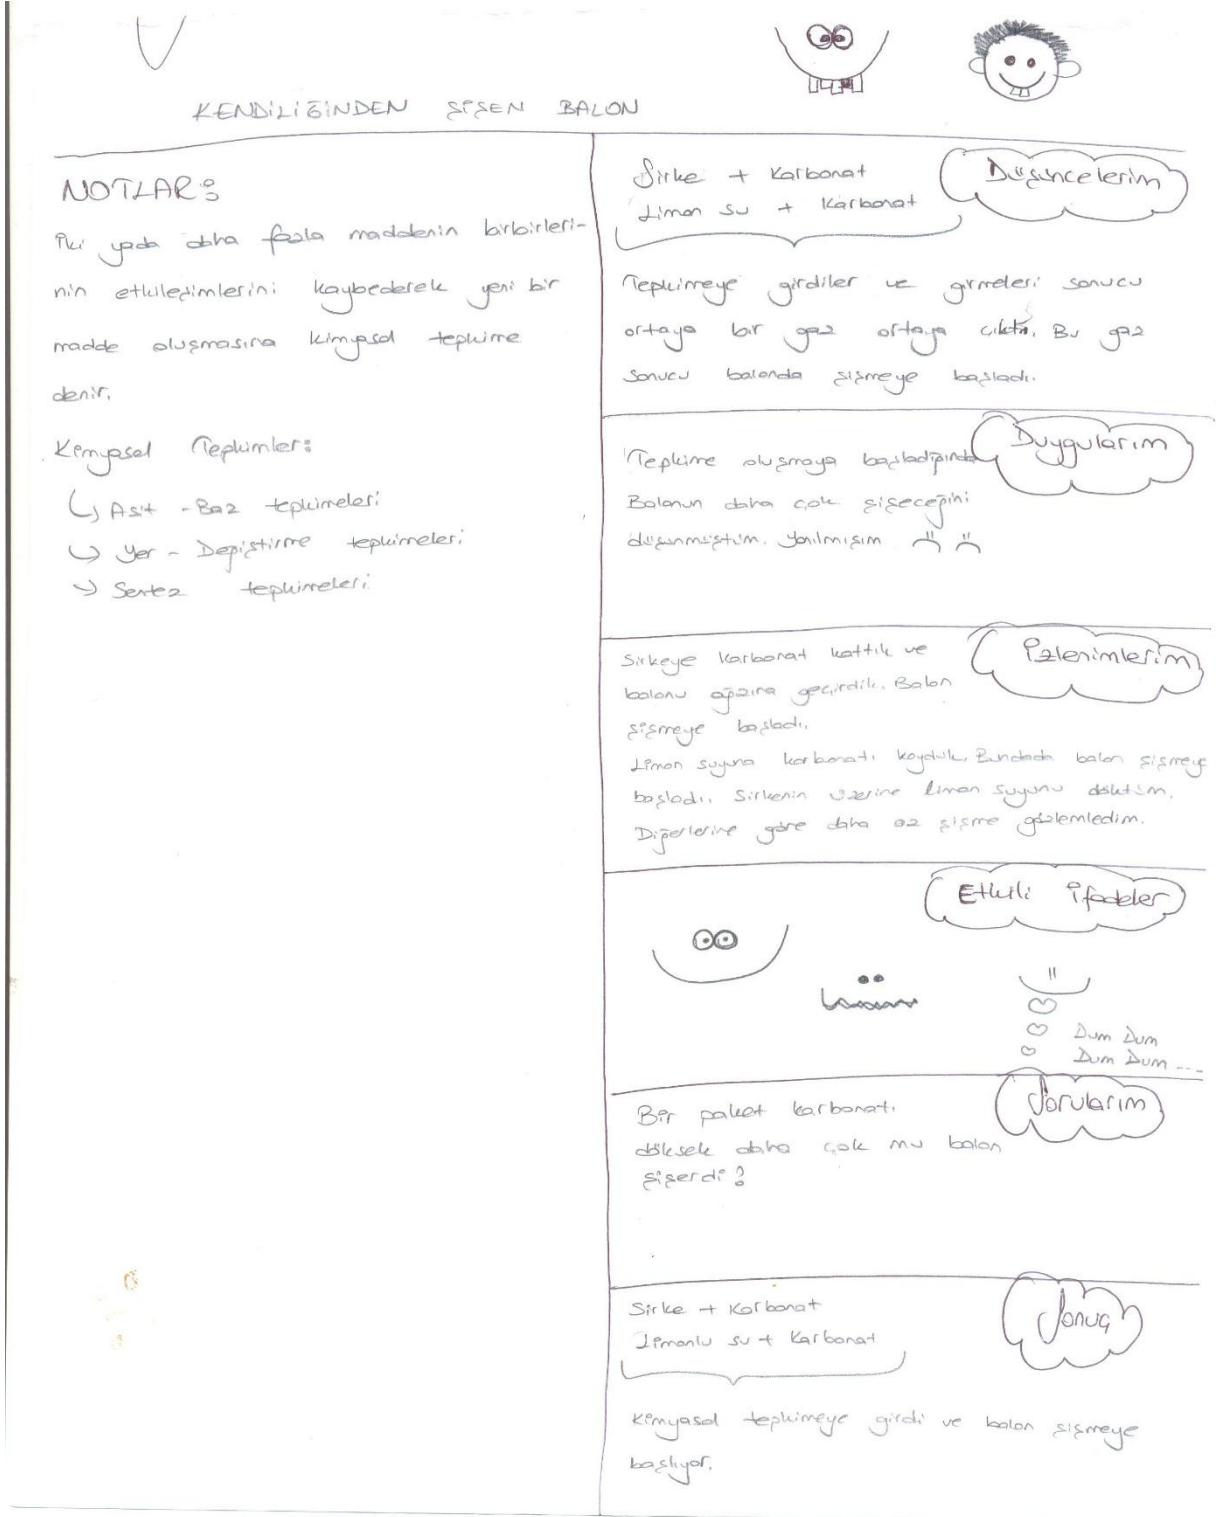 KENDİLİĞİNDEN ŞİŞEN BALON
NOTLAR:
İki yada daha fazla maddenin birbirleri-
nin etkileşimlerini kaybederek yeni bir
madde oluşmasına kimyasal tepkime
denir.
Kimyasal Tepkimler:
Asit - Baz tepkimeleri
Yer - Değiştirme tepkimeleri
Sentez tepkimeleri
Düşüncelerim
Sirke + Karbonat
Limon su + Karbonat
Tepkimeye girdiler ve girmeleri sonucu
ortaya bir gaz ortaya çıktı. Bu gaz
sonucu balonda şişmeye başladı.
Duygularım
Tepkime oluşmaya başladığında
Balonun daha çok şişeceğini
düşünmüştüm. Yanılmışım
İzlenimlerim
Sirkeye karbonat kattık ve
balonu ağzına geçirdik. Balon
şişmeye başladı.
Limon suyuna karbonatı koyduk. Bundada balon şişmeye
başladı. Sirkenin üzerine limon suyunu döktüm.
Diğerlerine göre daha az şişme gözlemledim.
Etkili İfadeler
Dum Dum
Dum Dum ---
Sorularım
Bir paket karbonatı
döksek daha çok mu balon
şişerdi?
Sonuç
Sirke + Karbonat
Limonlu su + Karbonat
Kimyasal tepkimeye girdi ve balon şişmeye
başlıyor.